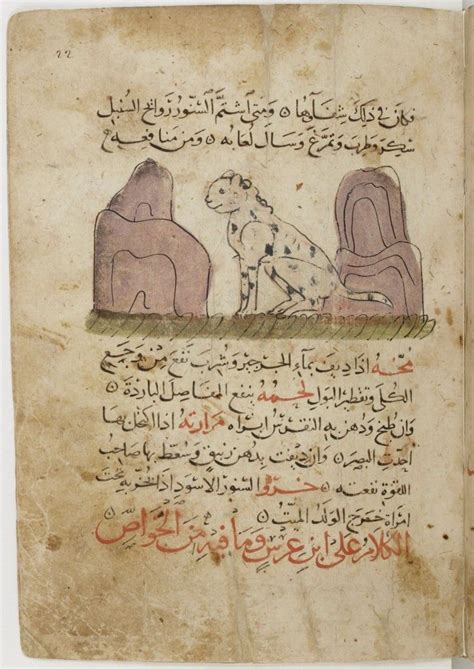 22
فكان في ذلك شفاؤها ۞ ومتى اشتم السنور روائح السنبل
سكر وطرب وتمرغ وسال لعابه ۞ ومن منافعه ۞
مخه اذا ديف بماء الجرجير وشرب نفع من وجع
الكلى وتقطير البول لحمه ينفع المفاصل الباردة ۞
وان طبخ ودهن به النقرس ابراه مرارته اذا اكتحل بها
احدت البصر ۞ وان ديفت بدهن زنبق وسعط بها صاحب
اللقوة نفعته ۞ خرؤ السنور الاسود اذا بخر به تحت
امراة خرج الولد الميت ۞
الكلام على ابن عرس وما فيه من الخواص